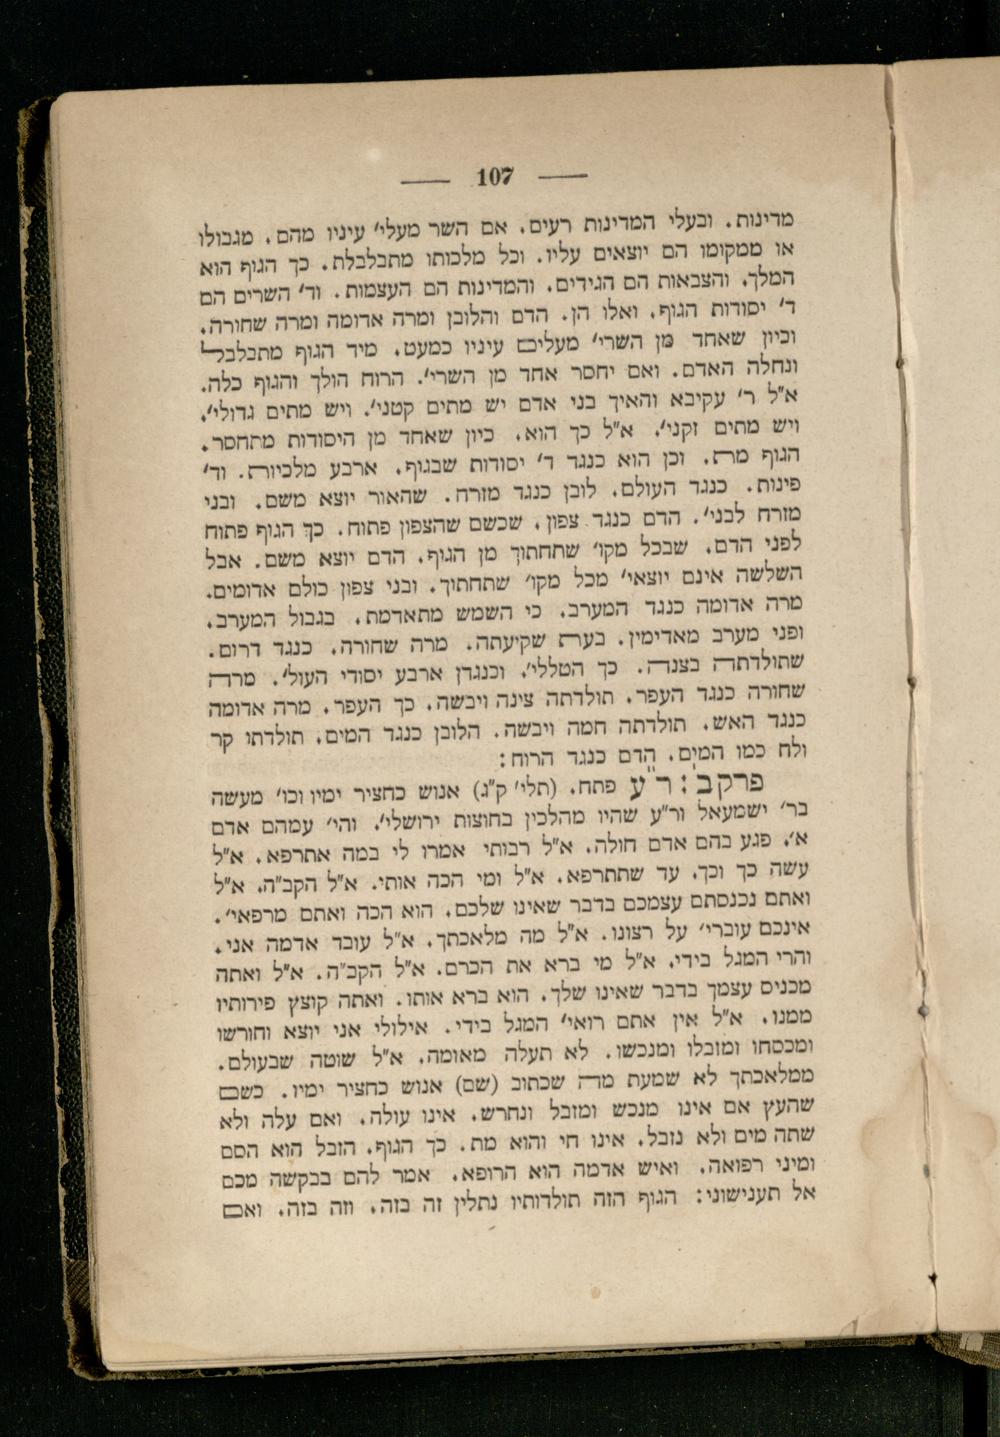 — 107 —
מדינות. ובעלי המדינות רעים. אם השר מעלי׳ עיניו מהם. מגבולו
או ממקומו הם יוצאים עליו. וכל מלכותו מתבלבלת. כך הגוף הוא
המלך. והצבאות הם הגידים. והמדינות הם העצמות. וד׳ השרים הם
ד׳ יסודות הגוף. ואלו הן. הדם והלובן ומרה אדומה ומרה שחורה.
וכיון שאחד מן השרי׳ מעלים עיניו כמעט. מיד הגוף מתבלבל
ונחלה האדם. ואם יחסר אחד מן השרי׳. הרוח הולך והגוף כלה.
א״ל ר׳ עקיבא והאיך בני אדם יש מתים קטני׳. ויש מתים גדולי׳.
ויש מתים זקני׳. א״ל כך הוא. כיון שאחד מן היסודות מתחסר.
הגוף מת. וכן הוא כנגד ד׳ יסודות שבגוף. ארבע מלכיות. וד׳
פינות. כנגד העולם. לובן כנגד מזרח. שהאור יוצא משם. ובני
מזרח לבני׳. הדם כנגד צפון. שכשם שהצפון פתוח. כך הגוף פתוח
לפני הדם. שבכל מקו׳ שתחתוך מן הגוף. הדם יוצא משם. אבל
השלשה אינם יוצאי׳ מכל מקו׳ שתחתוך. ובני צפון כולם אדומים.
מרה אדומה כנגד המערב. כי השמש מתאדמת. בגבול המערב.
ופני מערב מאדימין. בעת שקיעתה. מרה שחורה. כנגד דרום.
שתולדתה בצנה. כך הטללי׳. וכנגדן ארבע יסודי העול׳. מרה
שחורה כנגד העפר. תולדתה צינה ויבשה. כך העפר. מרה אדומה
כנגד האש. תולדתה חמה ויבשה. הלובן כנגד המים. תולדתו קר
ולח כמו המים. הדם כנגד הרוח:
פרק ב׳: ר״ע פתח. (תלי׳ ק״ג) אנוש כחציר ימיו וכו׳ מעשה
בר׳ ישמעאל ור״ע שהיו מהלכין בחוצות ירושלי׳. והי׳ עמהם אדם
א׳. פגע בהם אדם חולה. א״ל רבותי אמרו לי במה אתרפא. א״ל
עשה כך וכך. עד שתתרפא. א״ל ומי הכה אותי. א״ל הקב״ה. א״ל
ואתם נכנסתם עצמכם בדבר שאינו שלכם. הוא הכה ואתם מרפאי׳.
אינכם עוברי׳ על רצונו. א״ל מה מלאכתך. א״ל עובד אדמה אני.
והרי המגל בידי. א״ל מי ברא את הכרם. א״ל הקב״ה. א״ל ואתה
מכניס עצמך בדבר שאינו שלך. הוא ברא אותו. ואתה קוצץ פירותיו
ממנו. א״ל אין אתם רואי׳ המגל בידי. אילולי אני יוצא וחורשו
ומכסחו ומזבלו ומנכשו. לא תעלה מאומה. א״ל שוטה שבעולם.
ממלאכתך לא שמעת מה שכתוב (שם) אנוש כחציר ימיו. כשם
שהעץ אם אינו מנכש ומזבל ונחרש. אינו עולה. ואם עלה ולא
שתה מים ולא נזבל. אינו חי והוא מת. כך הגוף. הזבל הוא הסם
ומיני רפואה. ואיש אדמה הוא הרופא. אמר להם בבקשה מכם
אל תענישוני: הגוף הזה תולדותיו נתלין זה בזה. וזה בזה. ואם